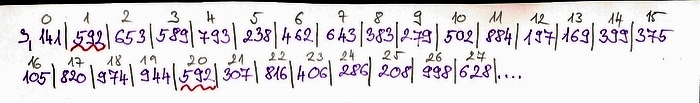 0 1 2 3 4 5 6 7 8 9 10 11 12 13 14 15
3,141|592|653|589|793|238|462|643|383|279|502|884|197|169|399|375
16 17 18 19 20 21 22 23 24 25 26 27
105|820|974|944|592|307|816|406|286|208|998|628|....